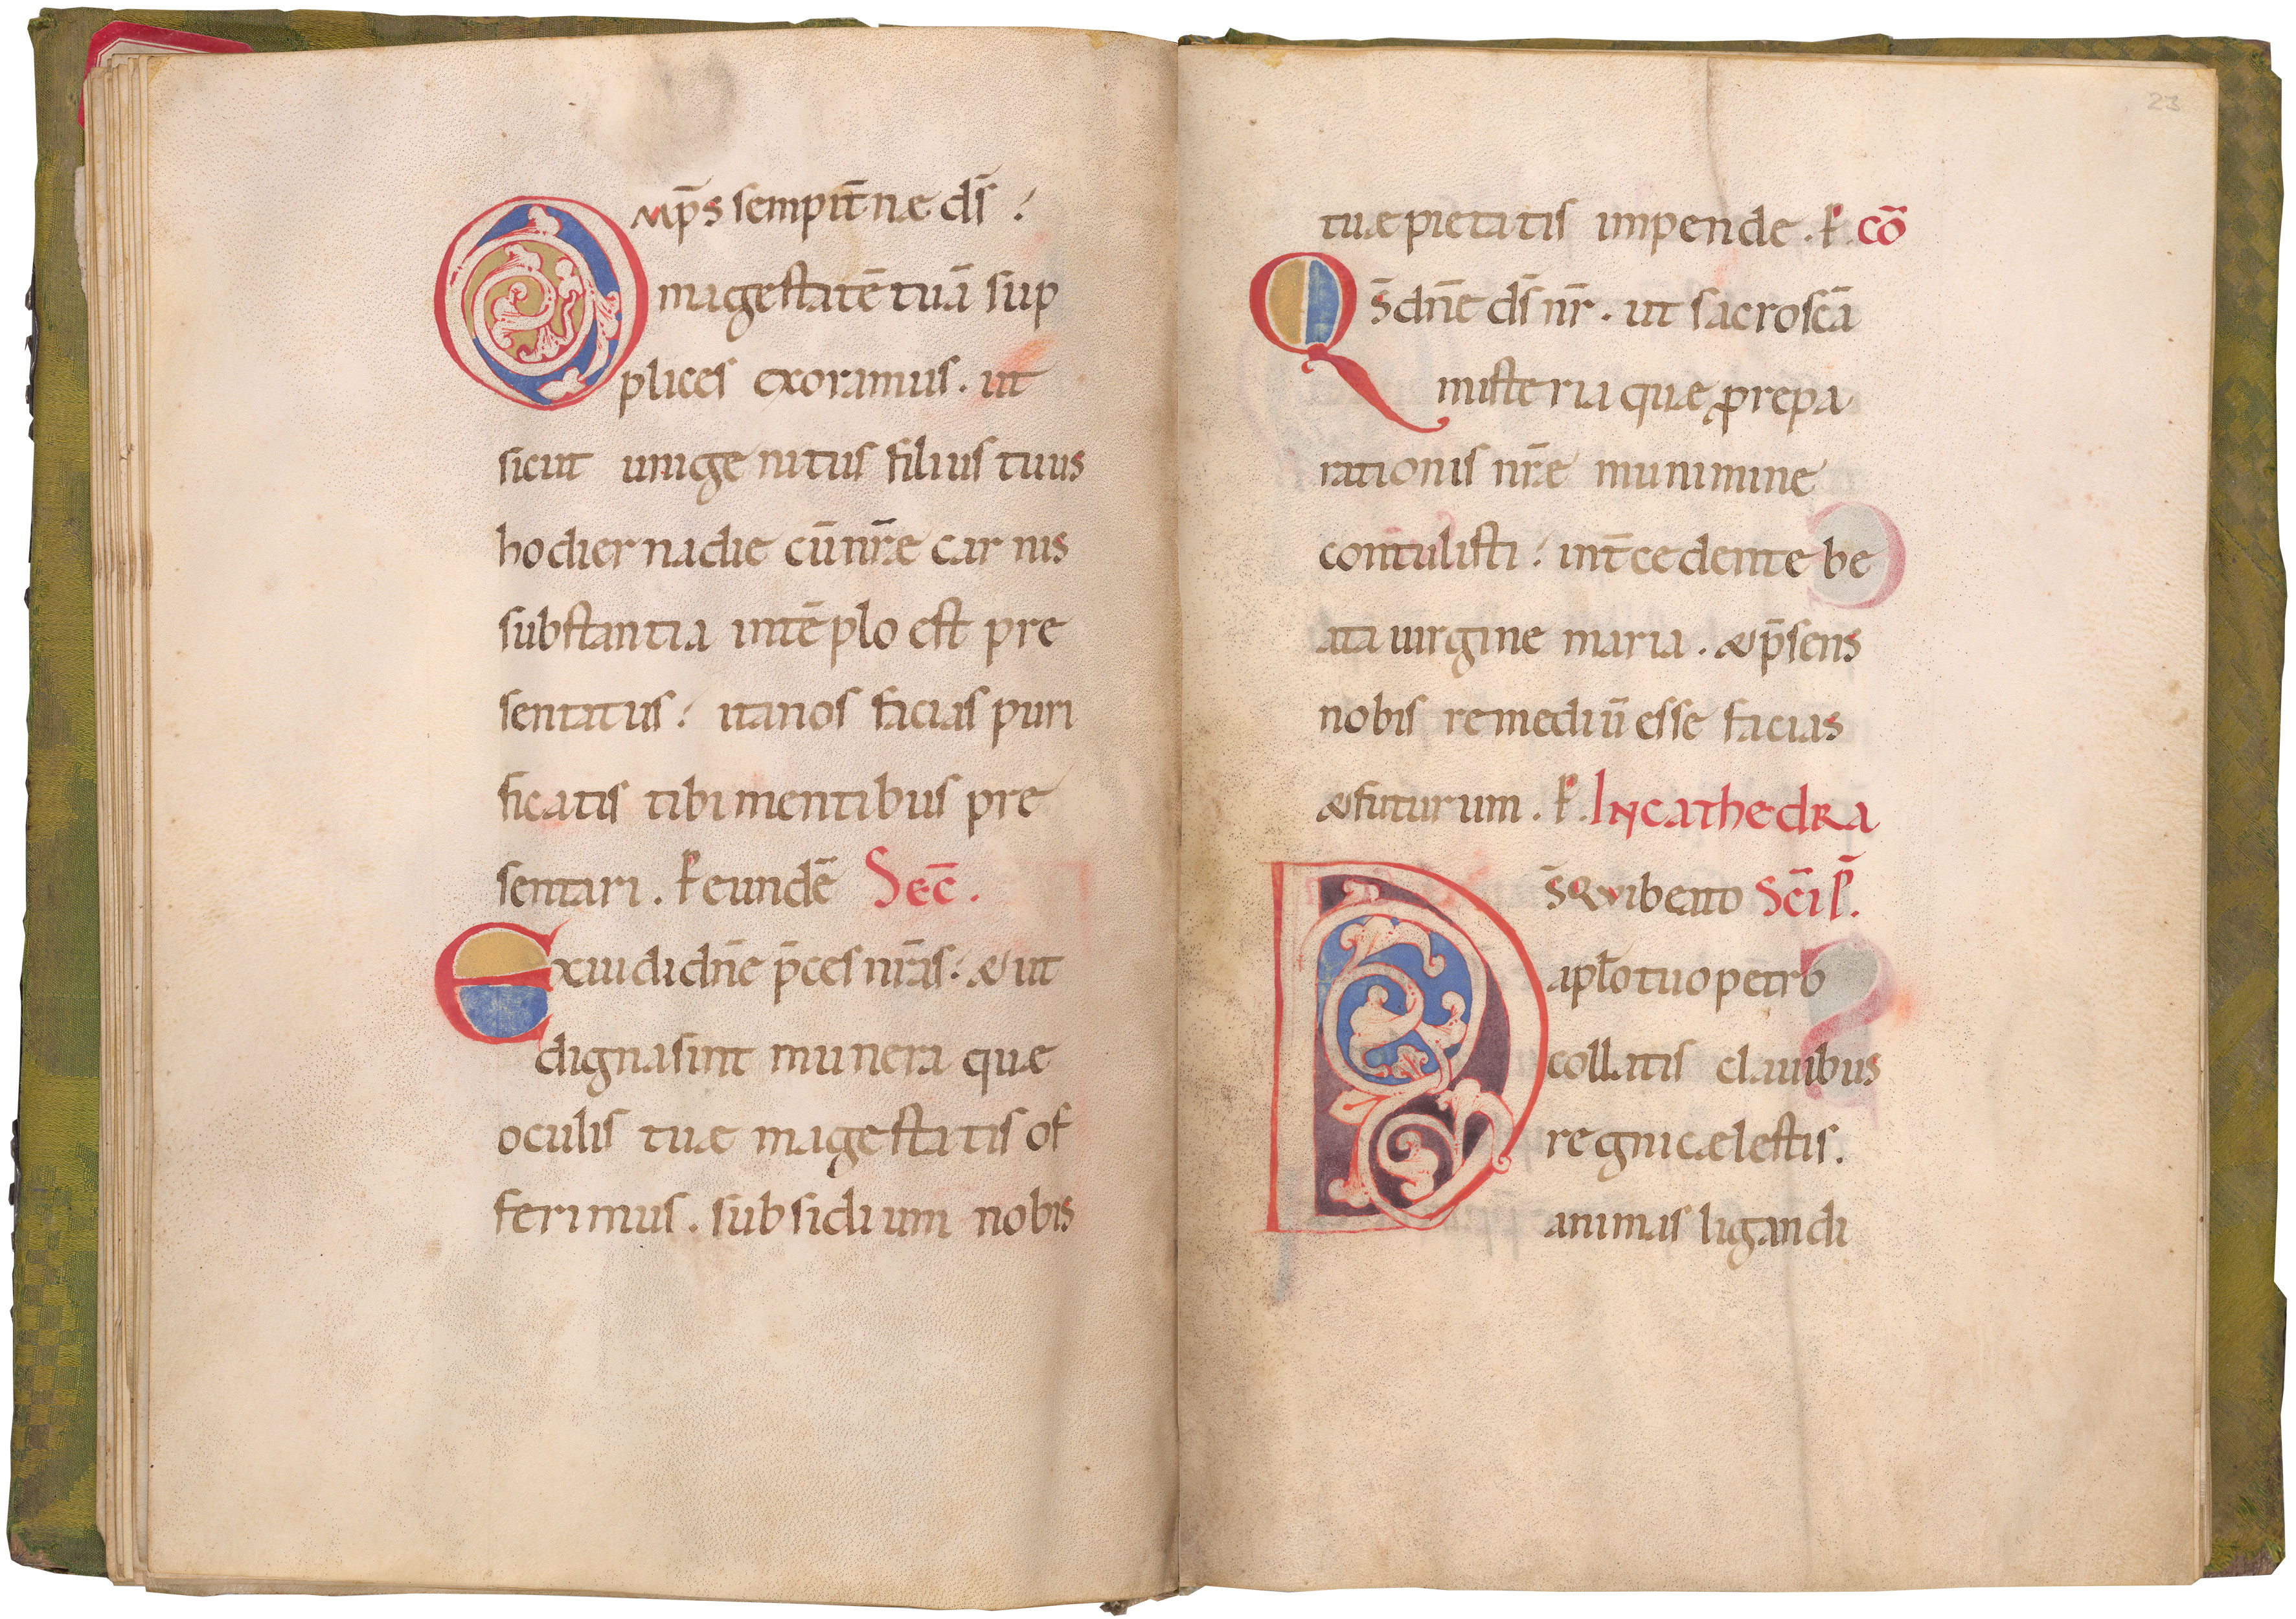 Omp̄s sempit̄næ ds̄ :
magestatē tuā sup
plices exoramus . ut
sicut unigenitus filius tuus
hodierna die cū nr̄æ carnis
substantia in tēplo est pre
sentatus : ita nos facias puri
ficatis tibi mentibus pre
sentari . P eundē Sec̄ .
Exaudi dn̄e p̄ces nr̄as : & ut
digna sint munera quæ
oculis tuæ magestatis of
ferimus . subsidium nobis
23
tuæ pietatis impende . P . cō
Qs̄ dn̄e ds̄ nr̄ . ut sacros cā
misteria quæ ꝓ repa
rationis nr̄æ munimine
contulisti : int̄cedente be
ata uirgine maria . & p̄sens
nobis remediū esse facias
& futurum . P . In cathedra
Ds̄ qui beato Sc̄i P̄ .
aplo tuo petro
collatis clauibus
regni cælestis .
animas ligandi